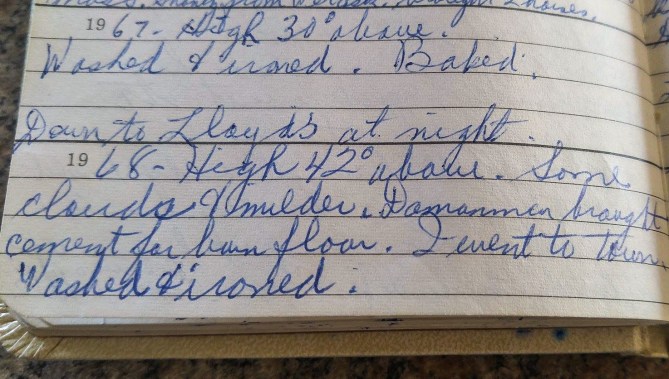 from 2 horses.
1967- High 30° above.
Washed & ironed. Baked.
Down to Lloyds at night.
1968- High 42° above. Some
clouds & milder. brought
cement for barn floor. I went to town.
Washed & ironed.